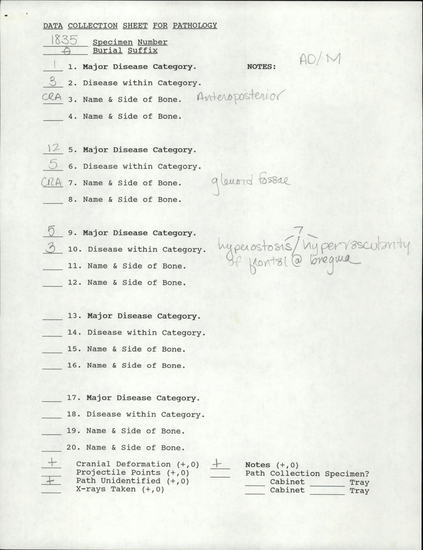 DATA COLLECTION SHEET FOR PATHOLOGY
1835 Specimen Number
A Burial Suffix
1 1. Major Disease Category. NOTES: AD/M
3 2. Disease within Category.
CRA 3. Name & Side of Bone. Anteroposterior
4. Name & Side of Bone.
12 5. Major Disease Category.
5 6. Disease within Category.
CRA 7. Name & Side of Bone. glenoid fossae
8. Name & Side of Bone.
5 9. Major Disease Category.
3 10. Disease within Category. hyperostosis/hypervascularity
11. Name & Side of Bone. of frontal @ bregma
12. Name & Side of Bone.
13. Major Disease Category.
14. Disease within Category.
15. Name & Side of Bone.
16. Name & Side of Bone.
17. Major Disease Category.
18. Disease within Category.
19. Name & Side of Bone.
20. Name & Side of Bone.
+ Cranial Deformation (+,0) + Notes (+,0)
Projectile Points (+,0) Path Collection Specimen?
+ Path Unidentified (+,0) Cabinet Tray
X-rays Taken (+,0) Cabinet Tray